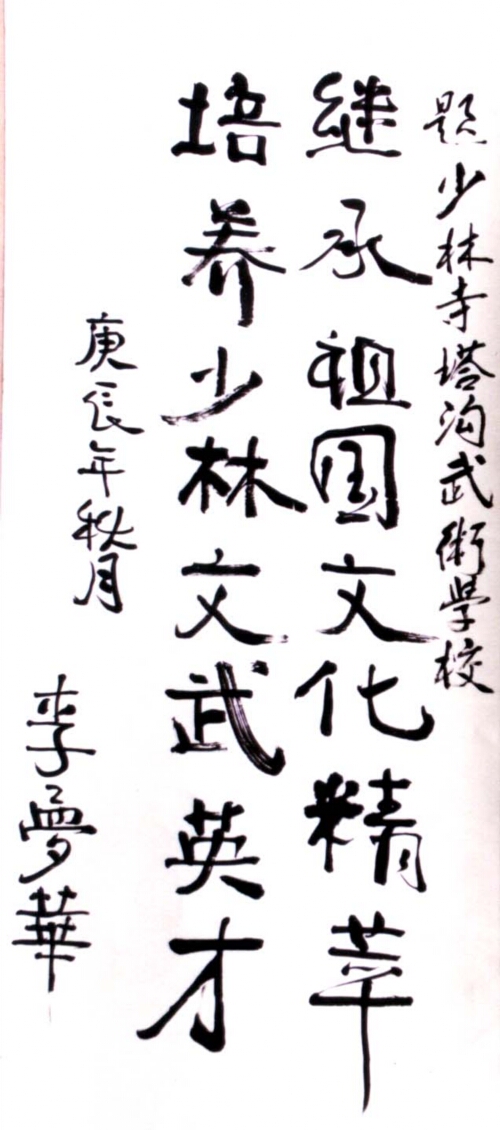 题少林寺塔沟武術學校
继承祖国文化精萃
培养少林文武英才
庚辰年秋月
李夢華